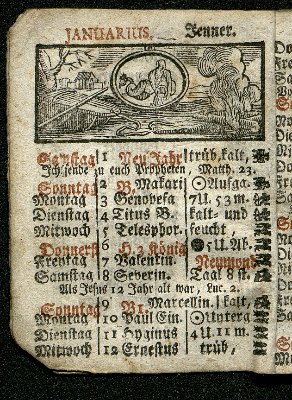 JANUARIUS. Jenner.
Samstag 1 Neu Jahr trüb, kalt,
Ich sende zu euch Propheten, Matth. 23.
Sonntag 2 B. Makari ☉ Aufga.
Montag 3 Genovefa 7 U. 53 m.
Dienstag 4 Titus B. kalt- und
Mitwoch 5 Telesphor. feucht,
Donnerst 6 H. 3 König 5 U. Ab.
Freytag 7 Valentin. Neumond
Samstag 8 Severin. Taal 8 st.
Als Jesus 12 Jahr alt war, Luc. 2.
Sonntag 9 Marcellin. kalt,
Montag 10 Paul Ein. ☉ Unterg
Dienstag 11 Hyginus 4 U. 11 m.
Mitwoch 12 Ernestus trüb,